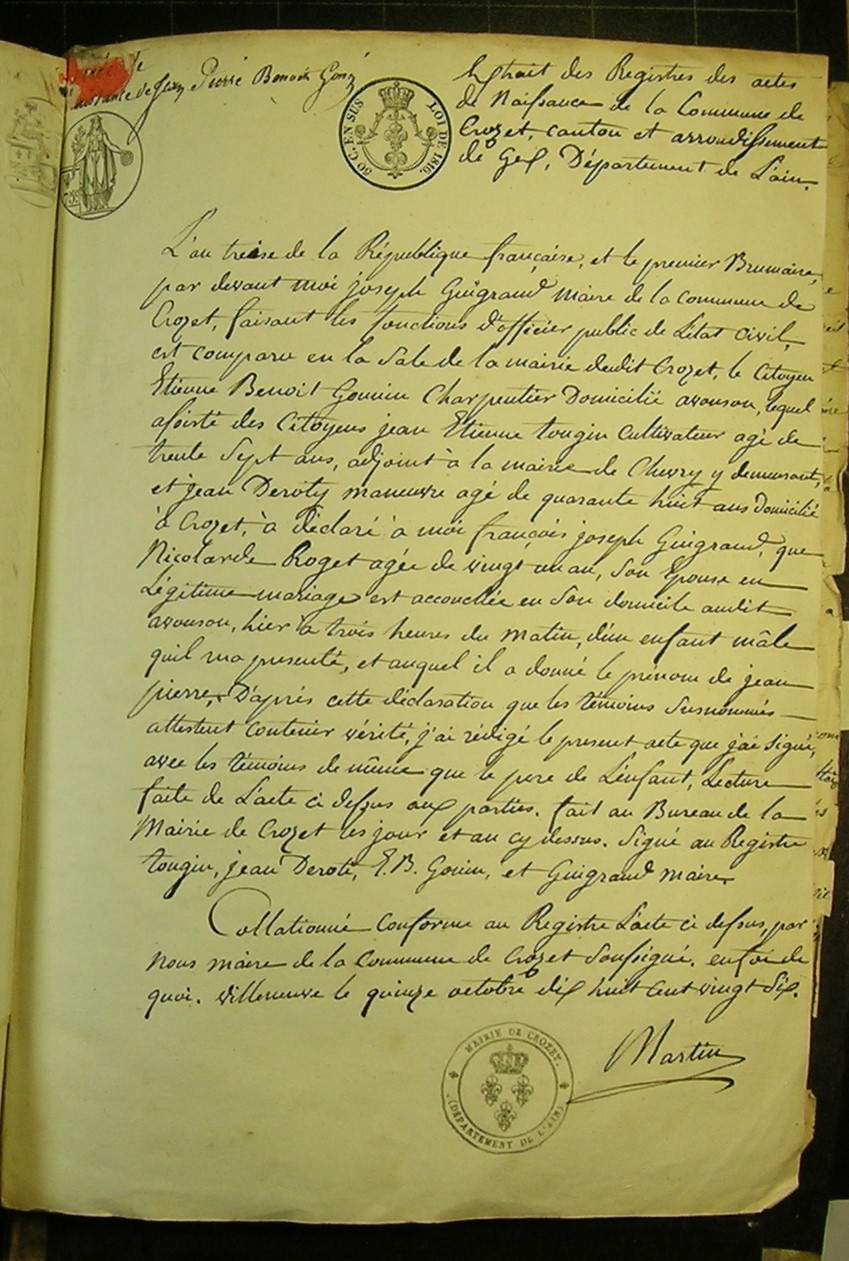 Naissance de Jean Pierre Benoit Gouin
50 C. EN SUS LOI DE 1816.
Extrait des Registres des actes
de Naissance de la Commune de
Crozet, canton et arrondissement
de Gex, Département de L'ain.
L'an treise de la République française, et le premier Brumaire,
par devant moi joseph Guigrand maire de la commune de
Crozet, faisant les fonctions d'officier public de L'état civil,
est comparu en la sale de la mairie dendit Crozet, le Citoyen
Etienne Benoit Gouin Charpentier Domicilié avouson, lequel
assisté des Citoyens jean Etienne tougin Cultivateur agé de
trente sept ans, adjoint à la mairie de Chevry y demeurant,
et jean Deroty maneuvre agé de quarante huit ans Domicilié
à Crozet, à déclaré à moi françois joseph Guigrand, que
Nicolarde Roget agée de vingt un an, son Epouse en
Légitime mariage est accouchée en son domicile audit
avouson, hier à trois heures du matin, d'un enfant mâle
quil ma presenté, et auquel il a donné le prénom de jean
pierre, D'après cette déclaration que les témoins susnommés
attestent contenir vérité, j'ai rédigé le present acte que j'ai signé,
avec les témoins de même que le pere de L'enfant, Lecture
faite de L'acte ci dessus aux parties. fait au Bureau de la
Mairie de Crozet les jour et an cy dessus. Signé au Registre
tougin, jean Deroté, E. B. Gouin, et Guigrand maire.
Collationné Conforme au Registre L'acte ci dessus, par
nous maire de la Commune de Crozet soussigné. en foi de
quoi. villeneuve le quinze octobre dix huit cent vingt six.
Martin
MAIRIE DE CROZET.
(DÉPARTEMENT DE L'AIN)